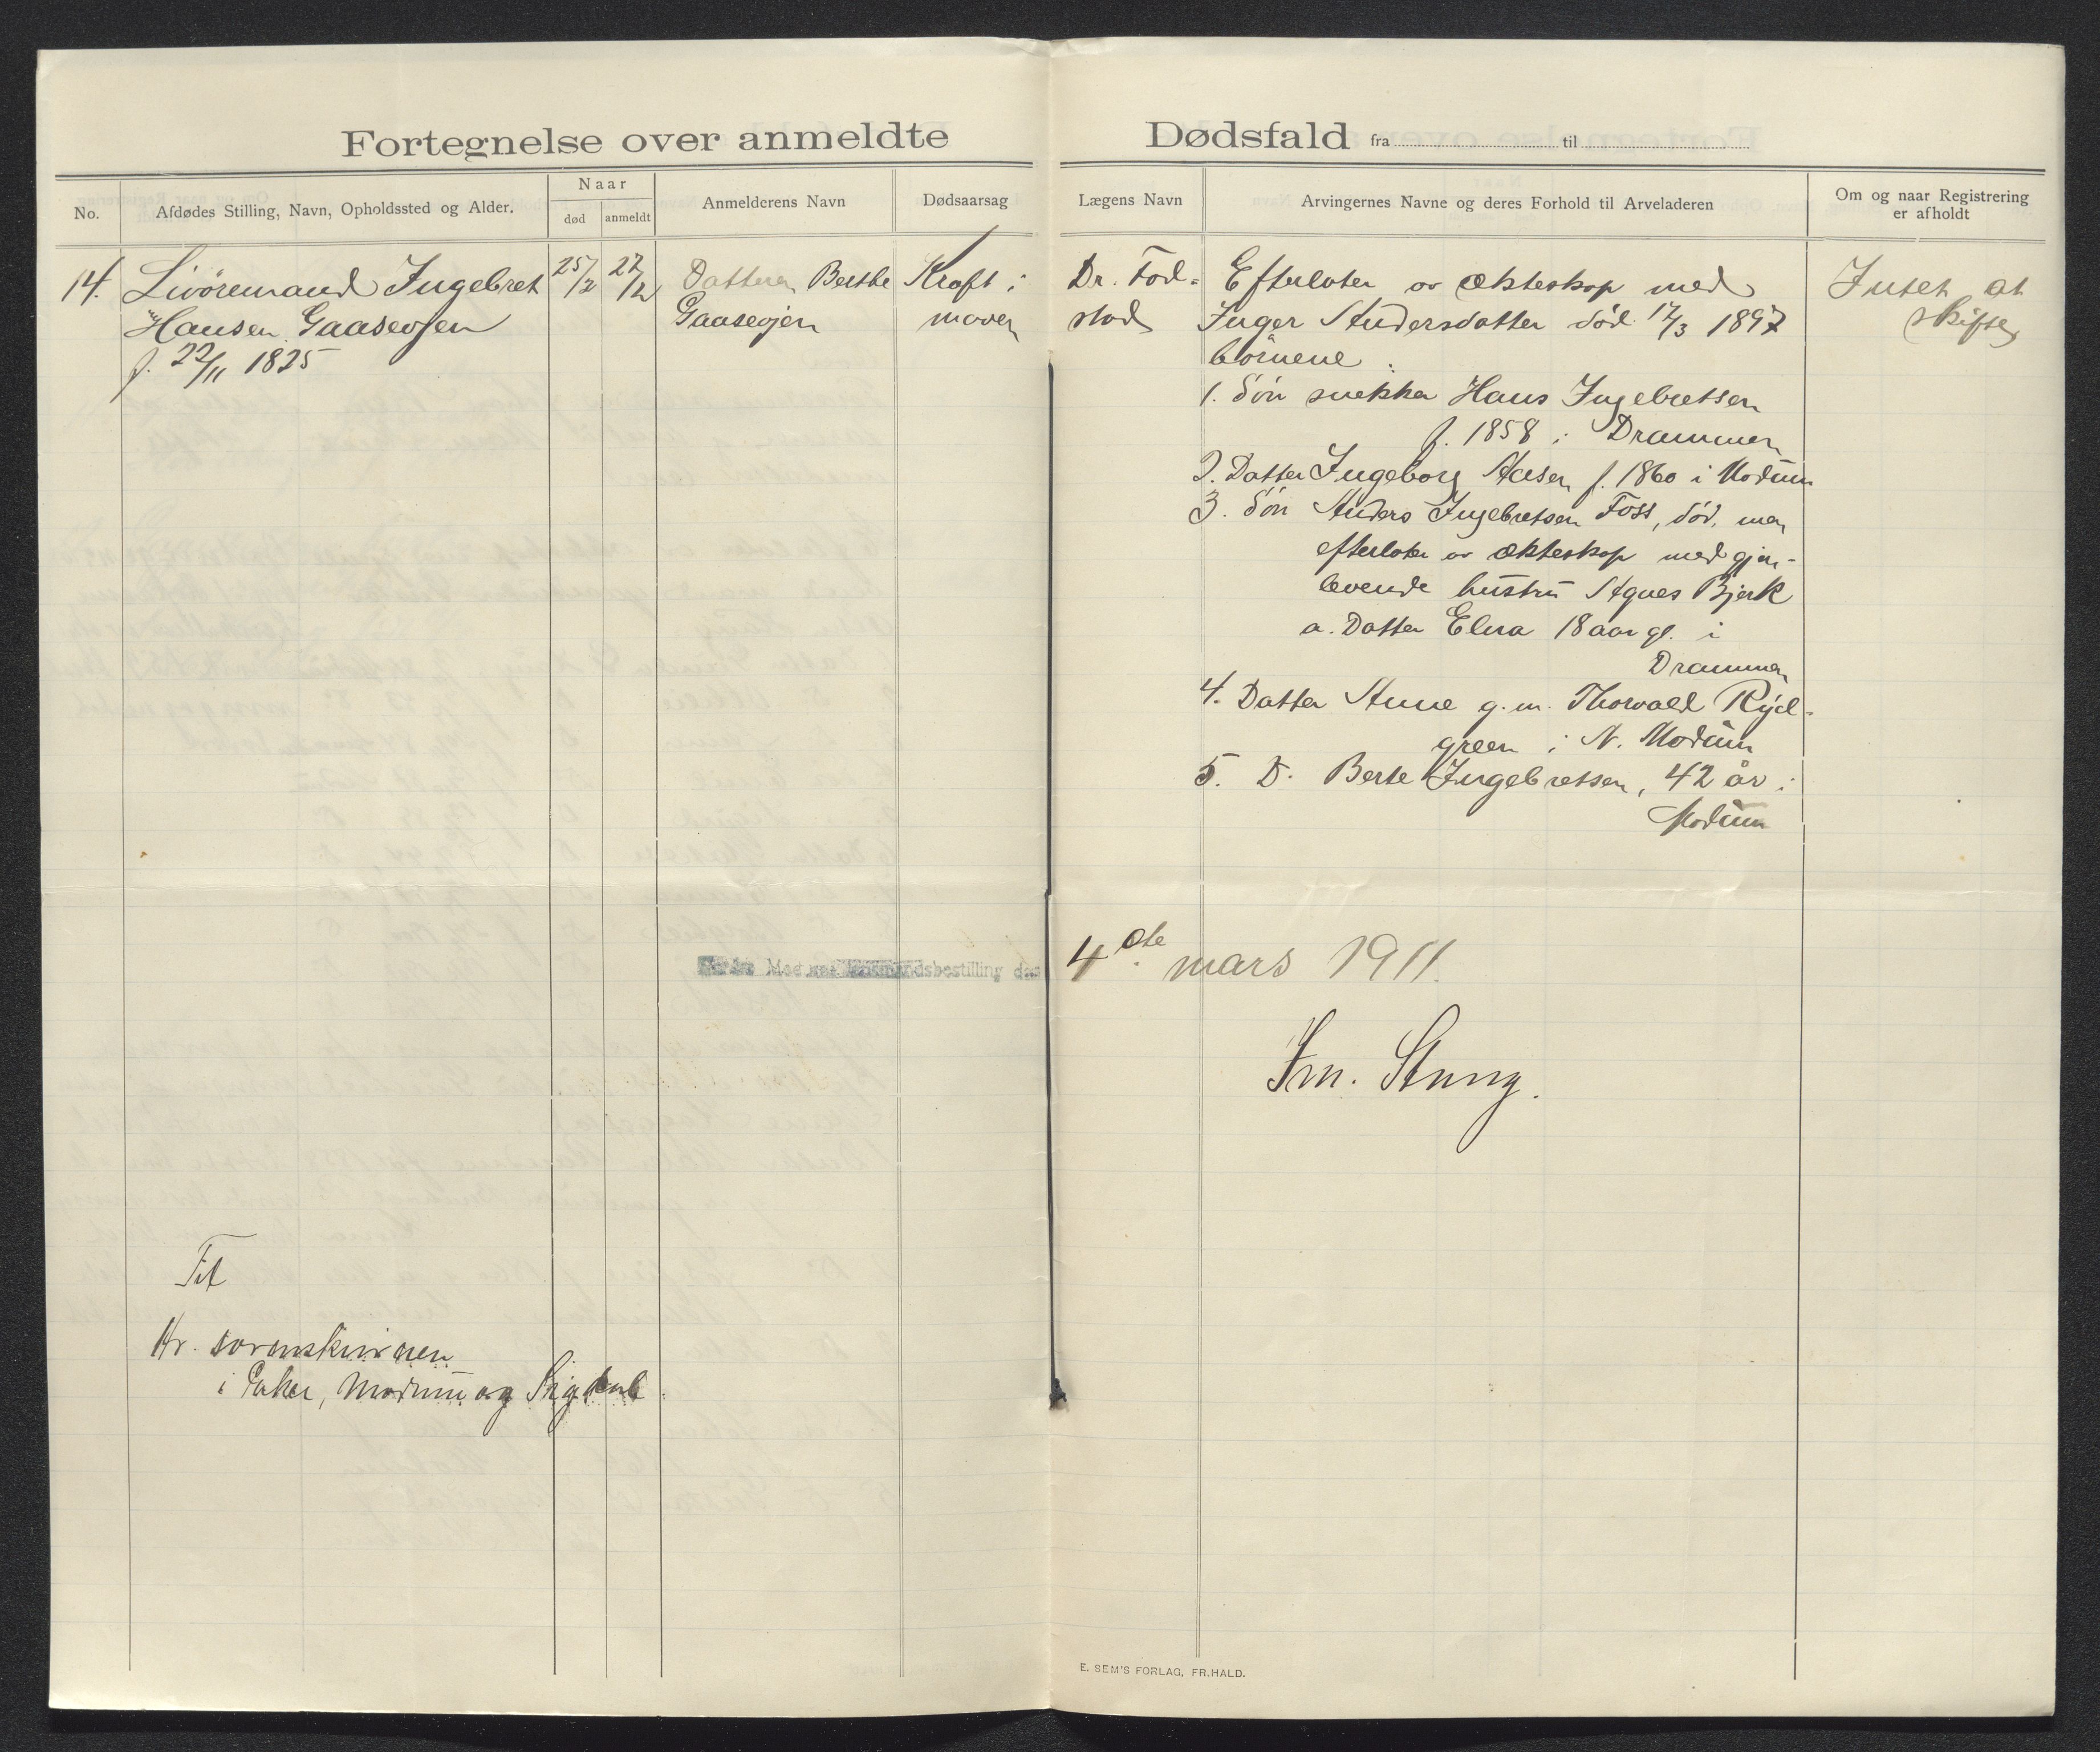 Fortegnelse over anmeldte Dødsfald fra til
No.
Afdødes Stilling, Navn, Opholdssted og Alder.
Naar
død
anmeldt
Anmelderens Navn
Dødsaarsag
Lægens Navn
Arvingernes Navne og deres Forhold til Arveladeren
Om og naar Registrering
er afholdt
14. Livöremand Ingebret
Hansen Gaaseojen
f. 22/11 1825
25/2
27/2
Datteren Berthe
Gaaseojen
Kræft i
maven
Dr. Fod-
stad
Efterlater av ekteskap med
Inger Andersdatter död 17/3 1897
börnene :
1. Sön snekker Hans Ingebretsen
f. 1858 i Drammen
2. Datter Ingeborg Aasen f. 1860 i Modum
3. Sön Anders Ingebretsen Foss, död, men
efterlater av ekteskap med gjen-
levende hustru Agnes Bjerk
a. Datter Elna 18 aar gl. i
Drammen
4. Datter Anne g. m. Thorvald Ryd-
green i N. Modum
5. D. Berte Ingebretsen, 42 år i
Modum
Intet at
skifte
Modum lensmandsbestilling den 4de mars 1911.
Fra. Stung.
Til
Hr. sorenskriveren
i Eker, Modum og Sigdal
E. SEM'S FORLAG, FR.HALD.